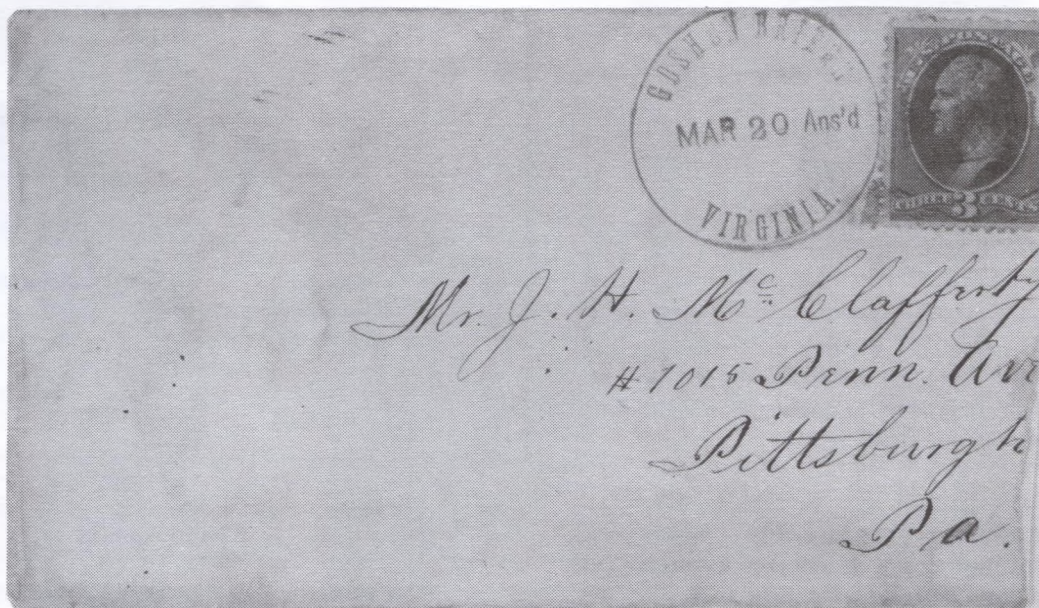 GOSHEN BRIDGE
MAR 20 Ans'd
VIRGINIA.
U.S. POSTAGE
3 CENTS
Mr. J. H. Mc Clafferty
#1015 Penn. Ave
Pittsburgh
Pa.